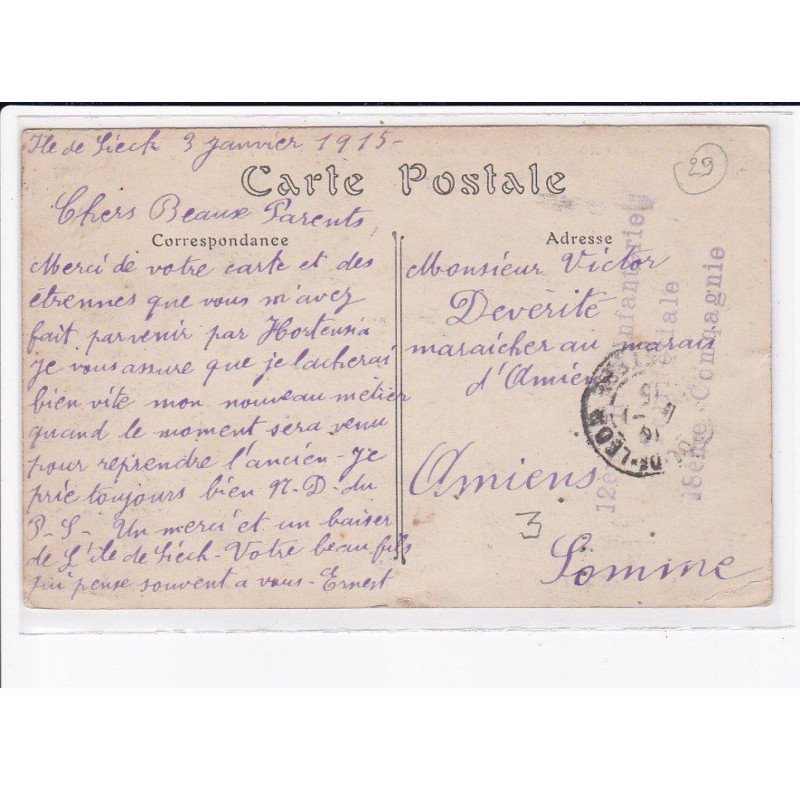 Ile de Siéck 3 janvier 1915-
29
Carte Postale
Chers Beaux Parents
Correspondance
Merci de votre carte et des
étrennes que vous m'avez
fait parvenir par Hortensia
Je vous assure que je lacherai
bien vite mon nouveau métier
quand le moment sera venu
pour reprendre l'ancien - Je
prie toujours bien N-D-du
P-S- Un merci et un baiser
de L'ile de Siéck - Votre beau fils
qui pense souvent a vous - Ernest
Adresse
Monsieur Victor
Devérité
maraicher au marais
d'Amiens
Amiens
3
Somme
Infanterie
18eme Compagnie
DE-LEON